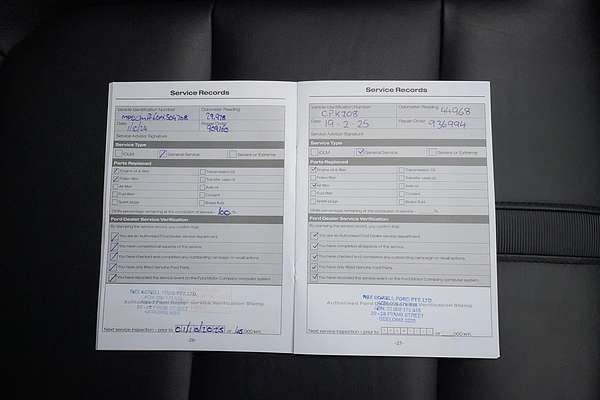 Service Records
Vehicle Identification Number
Odometer Reading
29,978
Date
Repair Order
Service Advisor Signature
Service Type
IOLM
General Service
Severe or Extreme
Parts Replaced
Engine oil & filter
Transmission oil
Pollen filter
Transfer case oil
Air filter
Axle oil
Fuel filter
Coolant
Spark plugs
Brake fluid
Oil life percentage remaining at the completion of service: 100 %
Ford Dealer Service Verification
By stamping the service record, you confirm that:
You are an authorised Ford Dealer service department.
You have completed all aspects of this service.
You have checked and completed any outstanding campaign or recall actions.
You have only fitted Genuine Ford Parts.
You have recorded this service event on the Ford Motor Company computer system.
Authorised Ford Dealer Service Verification Stamp
Next service/inspection - prior to 01/10/2025 or 45 000 km.
-26-
Service Records
Vehicle Identification Number
CPK208
Odometer Reading
44968
Date
19-2-25
Repair Order
936994
Service Advisor Signature
Service Type
IOLM
General Service
Severe or Extreme
Parts Replaced
Engine oil & filter
Transmission oil
Pollen filter
Transfer case oil
Air filter
Axle oil
Fuel filter
Coolant
Spark plugs
Brake fluid
Oil life percentage remaining at the completion of service: %
Ford Dealer Service Verification
By stamping the service record, you confirm that:
You are an authorised Ford Dealer service department.
You have completed all aspects of this service.
You have checked and completed any outstanding campaign or recall actions.
You have only fitted Genuine Ford Parts.
You have recorded this service event on the Ford Motor Company computer system.
FORD PTY. LTD.
Authorised Ford Dealer Service Verification Stamp
STREET
Next service/inspection - prior to or ,000 km.
-27-